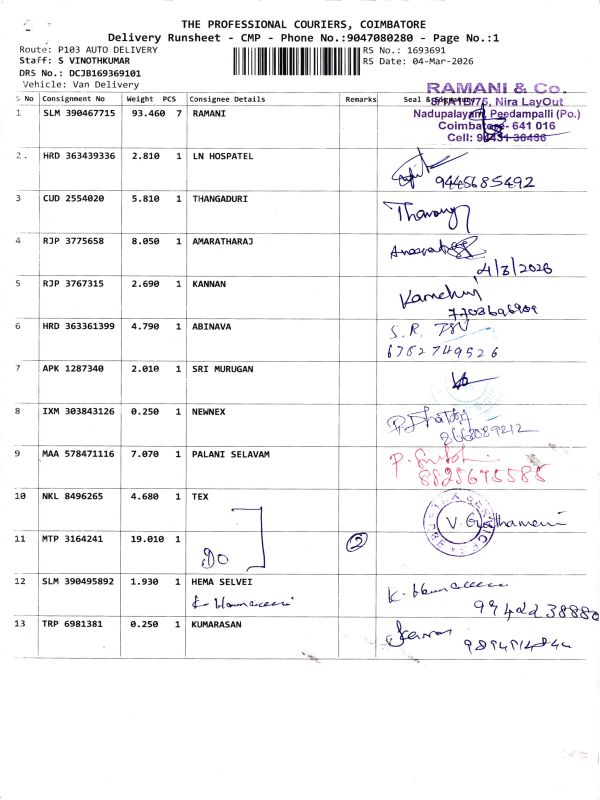 THE PROFESSIONAL COURIERS, COIMBATORE
Delivery Runsheet - CMP - Phone No.:9047080280 - Page No.:1
Route: P103 AUTO DELIVERY
RS No.: 1693691
Staff: S VINOTHKUMAR
RS Date: 04-Mar-2026
DRS No.: DCJB169369101
Vehicle: Van Delivery
S No Consignment No Weight PCS Consignee Details Remarks Seal &
RAMANI & Co.
Nira LayOut
Nadupalayam, Peedampalli (Po.)
Coimbatore- 641 016
Cell: 98431 36436
1 SLM 390467715 93.460 7 RAMANI
2. HRD 363439336 2.810 1 LN HOSPATEL
9445685492
3 CUD 2554020 5.810 1 THANGADURI
4 RJP 3775658 8.050 1 AMARATHARAJ
4/3/2026
5 RJP 3767315 2.690 1 KANNAN
7703696909
6 HRD 363361399 4.790 1 ABINAVA
S.R.
6782749526
7 APK 1287340 2.010 1 SRI MURUGAN
8 IXM 303843126 0.250 1 NEWNEX
9 MAA 578471116 7.070 1 PALANI SELAVAM
8825675585
10 NKL 8496265 4.680 1 TEX
11 MTP 3164241 19.010 1 2
12 SLM 390495892 1.930 1 HEMA SELVEI
13 TRP 6981381 0.250 1 KUMARASAN